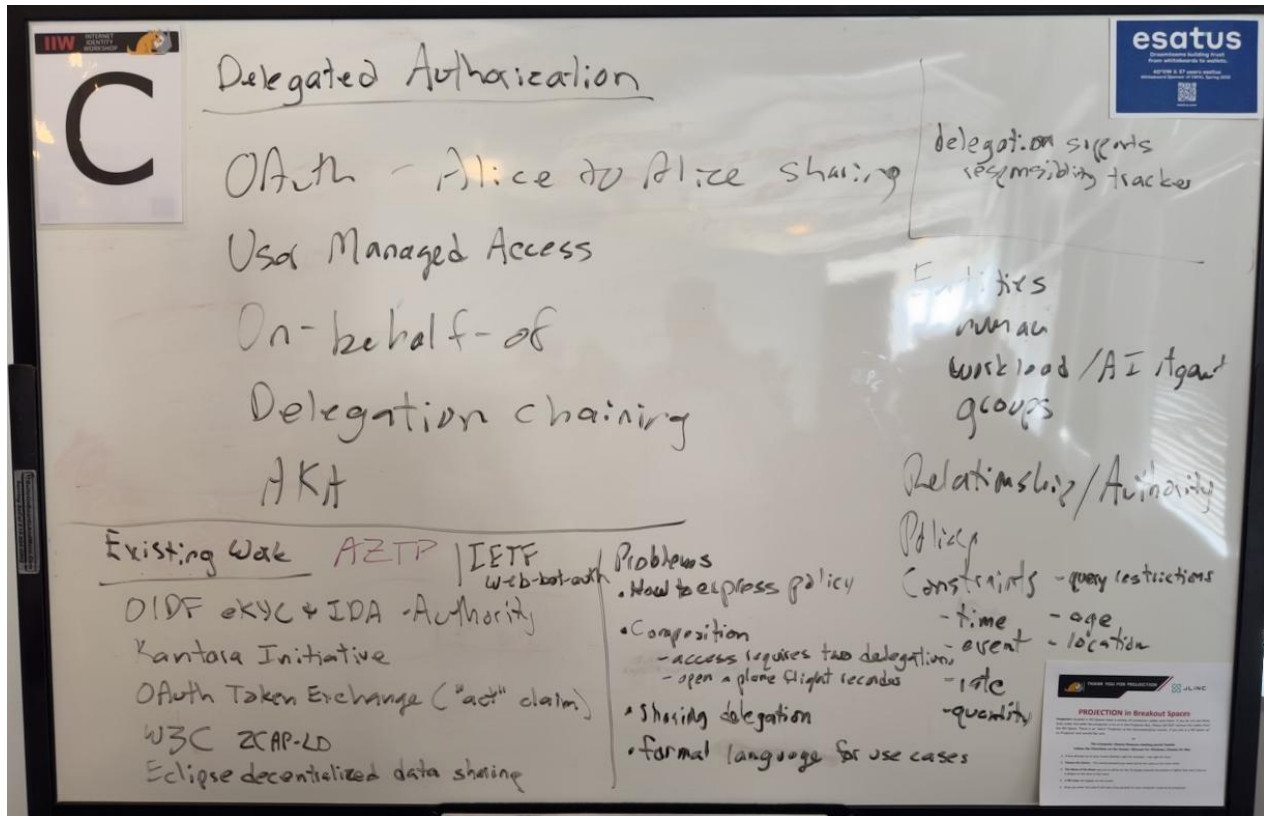 IIW INTERNET IDENTITY WORKSHOP
C
Delegated Authorization
OAuth - Alice to Alice sharing
User Managed Access
On-behalf-of
Delegation chaining
AKA
esatus
from whiteboards to wallets.
delegation supports
responsibility tracker
Entities
human
workload / AI Agent
groups
Relationship / Authority
Policy
Constraints - query restrictions
- time - age
- event - location
- rate
- quantity
Existing Work AZTP
IETF
web-bot-auth
OIDF eKYC & IDA - Authority
Kantara Initiative
OAuth Token Exchange ("act" claim)
W3C ZCAP-LD
Eclipse decentralized data sharing
Problems
• How to express policy
• Composition
- access requires two delegations
- open a plane flight recorder
• Sharing delegation
• formal language for use cases
THANK YOU FOR PROJECTION
JLINC
PROJECTION in Breakout Spaces